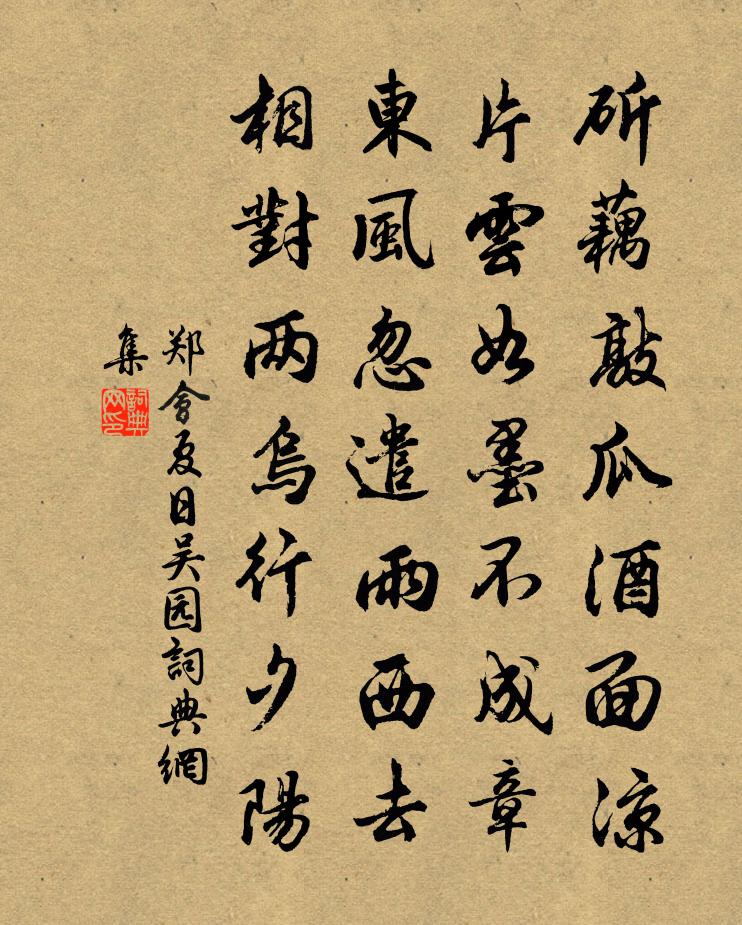 斫藕敲瓜酒面涼
片雲如墨不成章
東風忽遣雨西去
相對两烏行夕陽
郑會夏日吴园詞典網
集
詞典網印